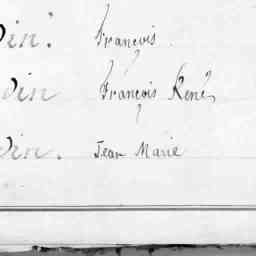 din. François
din François René
din. Jean Marie